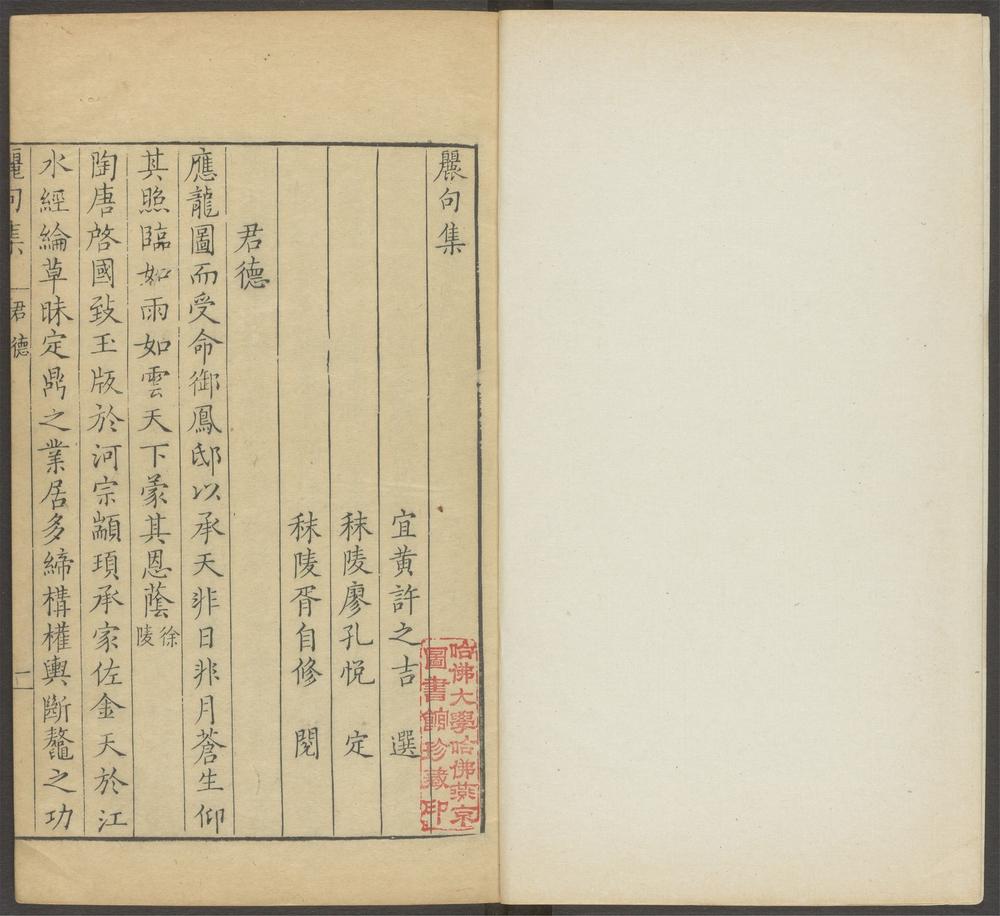 麗句集
宜黃許之吉 選
秣陵廖孔悅 定
秣陵胥自修 閱
君德
應龍圖而受命御鳳邸以承天非日非月蒼生仰
其照臨如雨如雲天下蒙其恩蔭徐陵
陶唐啓國致玉版於河宗顓頊承家佐金天於江
水經綸草昧定鼎之業居多締構權輿斷鼇之功
麗句集 君德 一
哈佛大學哈佛燕京
圖書館珍藏印